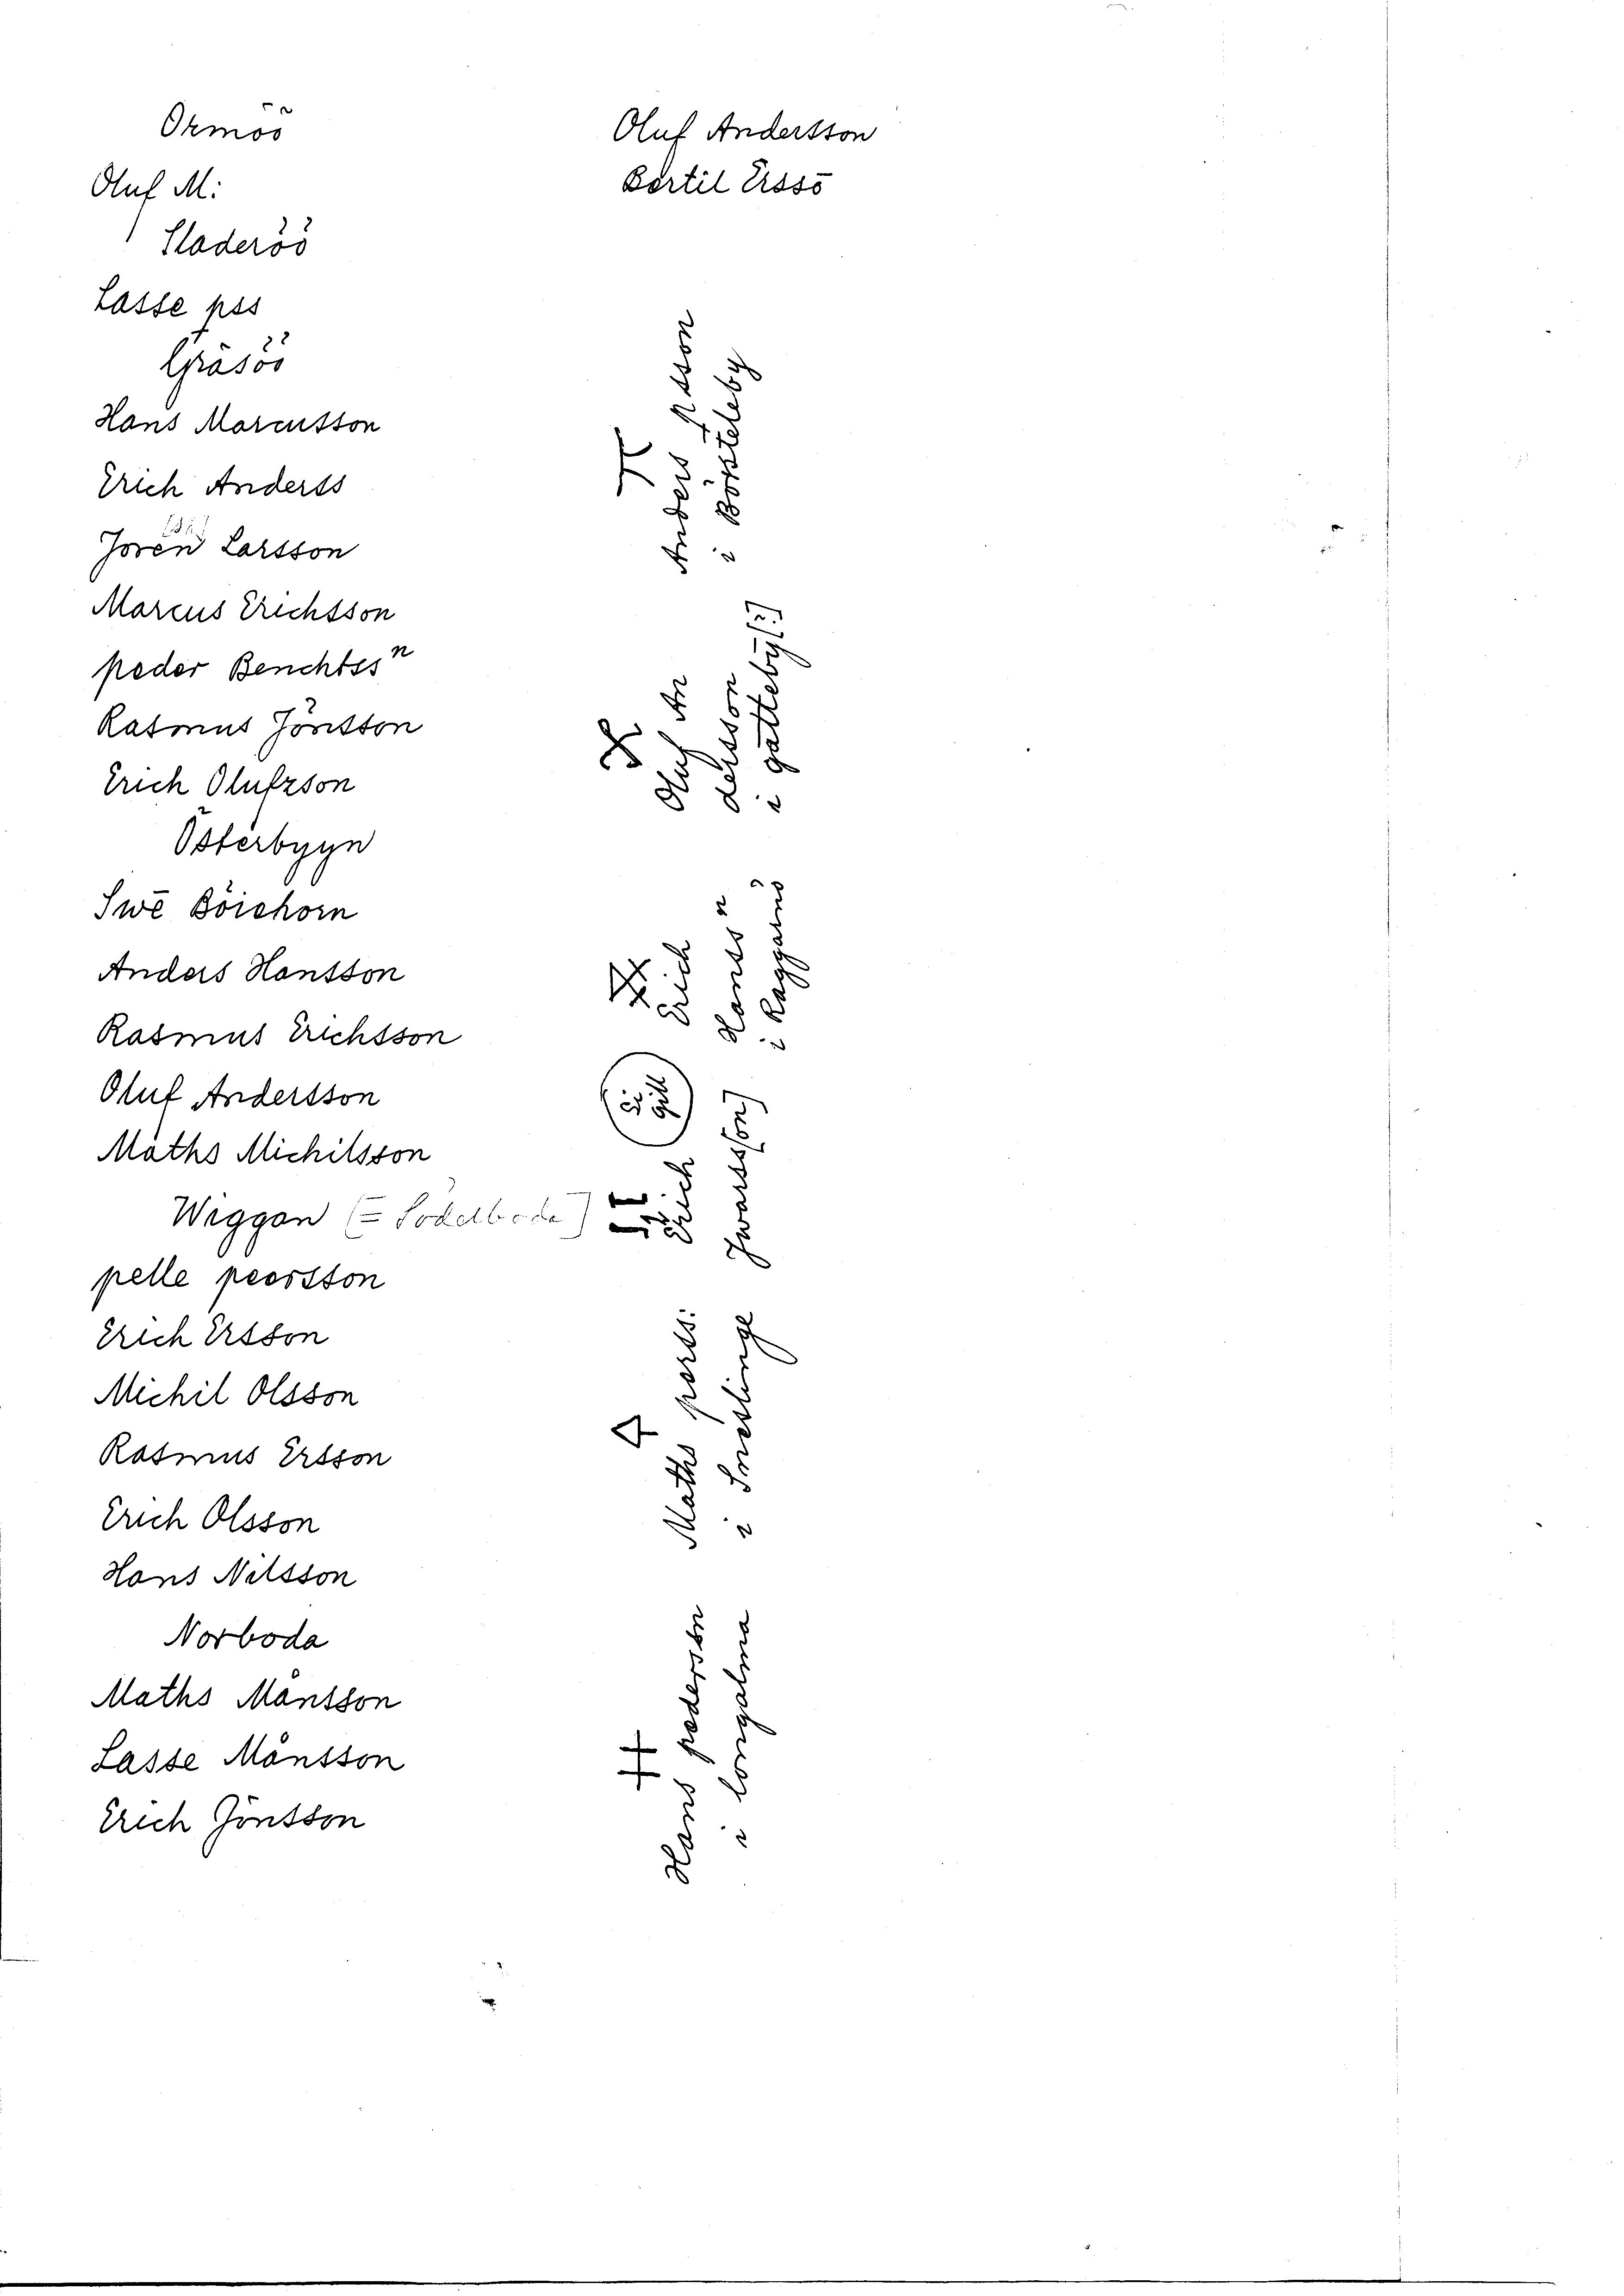 Ormöö
Oluf M:
Sladeröö
Lasse pss
Gräsöö
Hans Marcusson
Erich Anderss
Joren Larsson
Marcus Erichsson
peder Benchtssn
Rasmus Jönsson
Erich Olufzson
Österbyyn
Swē Böichorn
Anders Hansson
Rasmus Erichsson
Oluf Andersson
Maths Michilsson
Wiggan (= Söderboda)
pelle peersson
Erich Ersson
Michil Olsson
Rasmus Ersson
Erich Olsson
Hans Nilsson
Norboda
Maths Månsson
Lasse Månsson
Erich Jönsson
Oluf Andersson
Bertil Erssō
Anders psson
i Börsteleby
Oluf An
dersson
i gätteby[?]
Erich
Hanssn
i Raggarnö
Erich
Jwarss[on]
Maths perss:
i Sneslinge
Hans pederson
i longalma